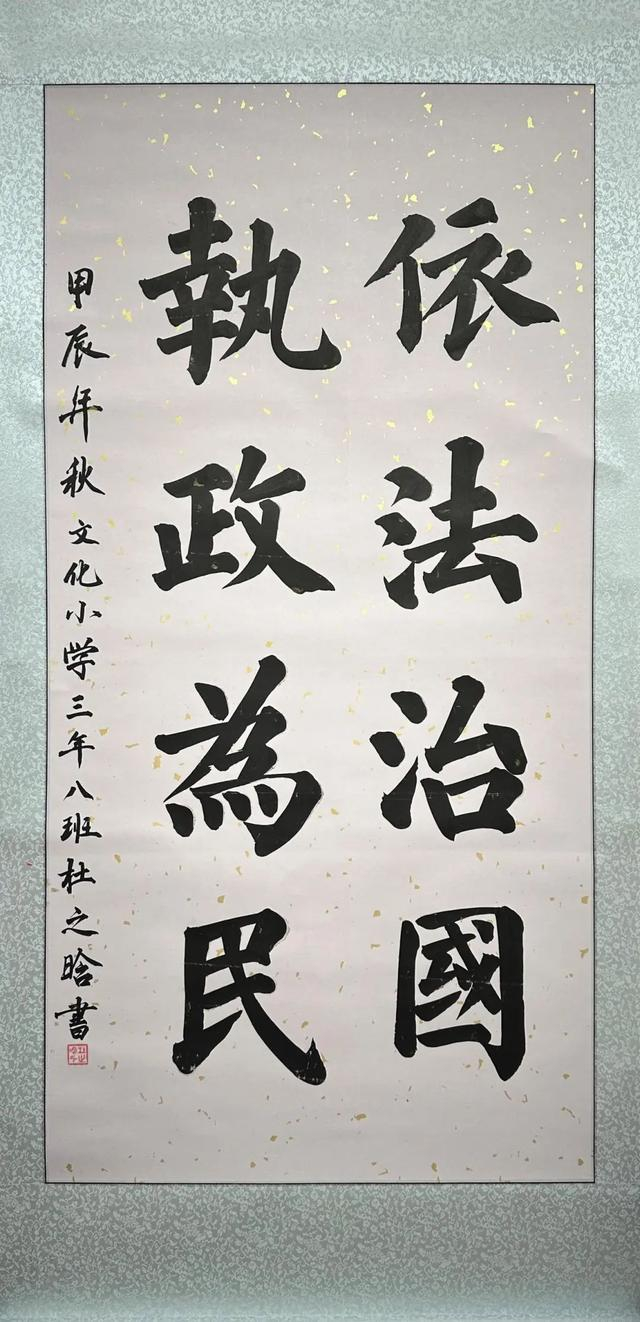 依法治國
執政為民
甲辰年秋文化小学三年八班杜之晗書